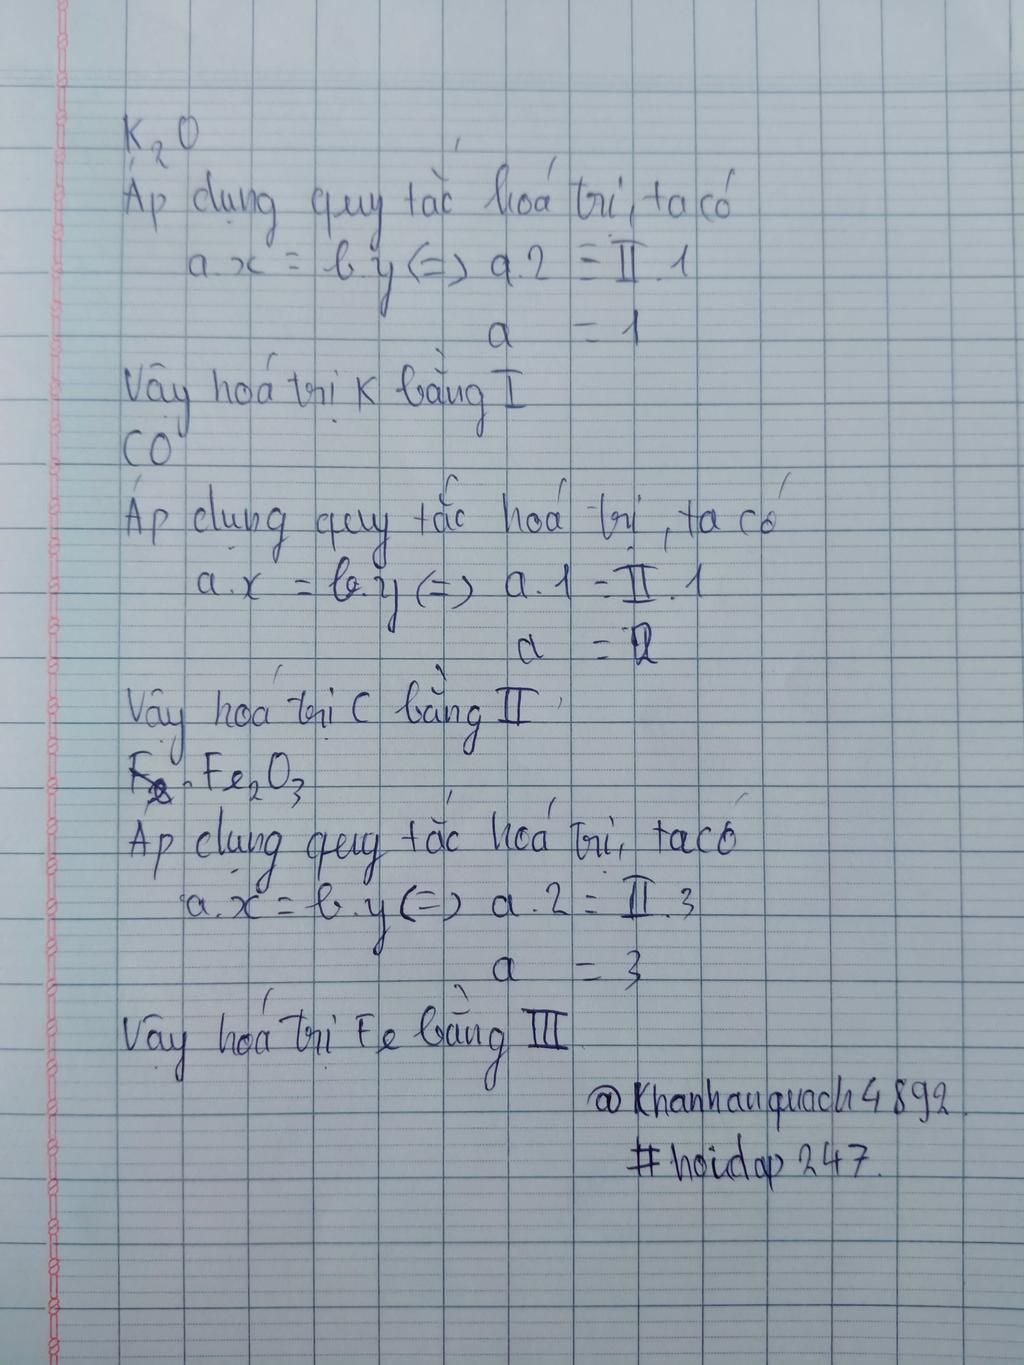 K₂O
Áp dụng quy tắc hoá trị, ta có
a.x = b.y (=) a.2 = II.1
a = 1
Vậy hoá trị K bằng I
CO
Áp dụng quy tắc hoá trị, ta có
a.x = b.y (=) a.1 = II.1
a = 2
Vậy hoá trị C bằng II
Fe₂O₃
Áp dụng quy tắc hoá trị, ta có
a.x = b.y (=) a.2 = II.3
a = 3
Vậy hoá trị Fe bằng III
@Khanhanquach4892
#hoidap247.